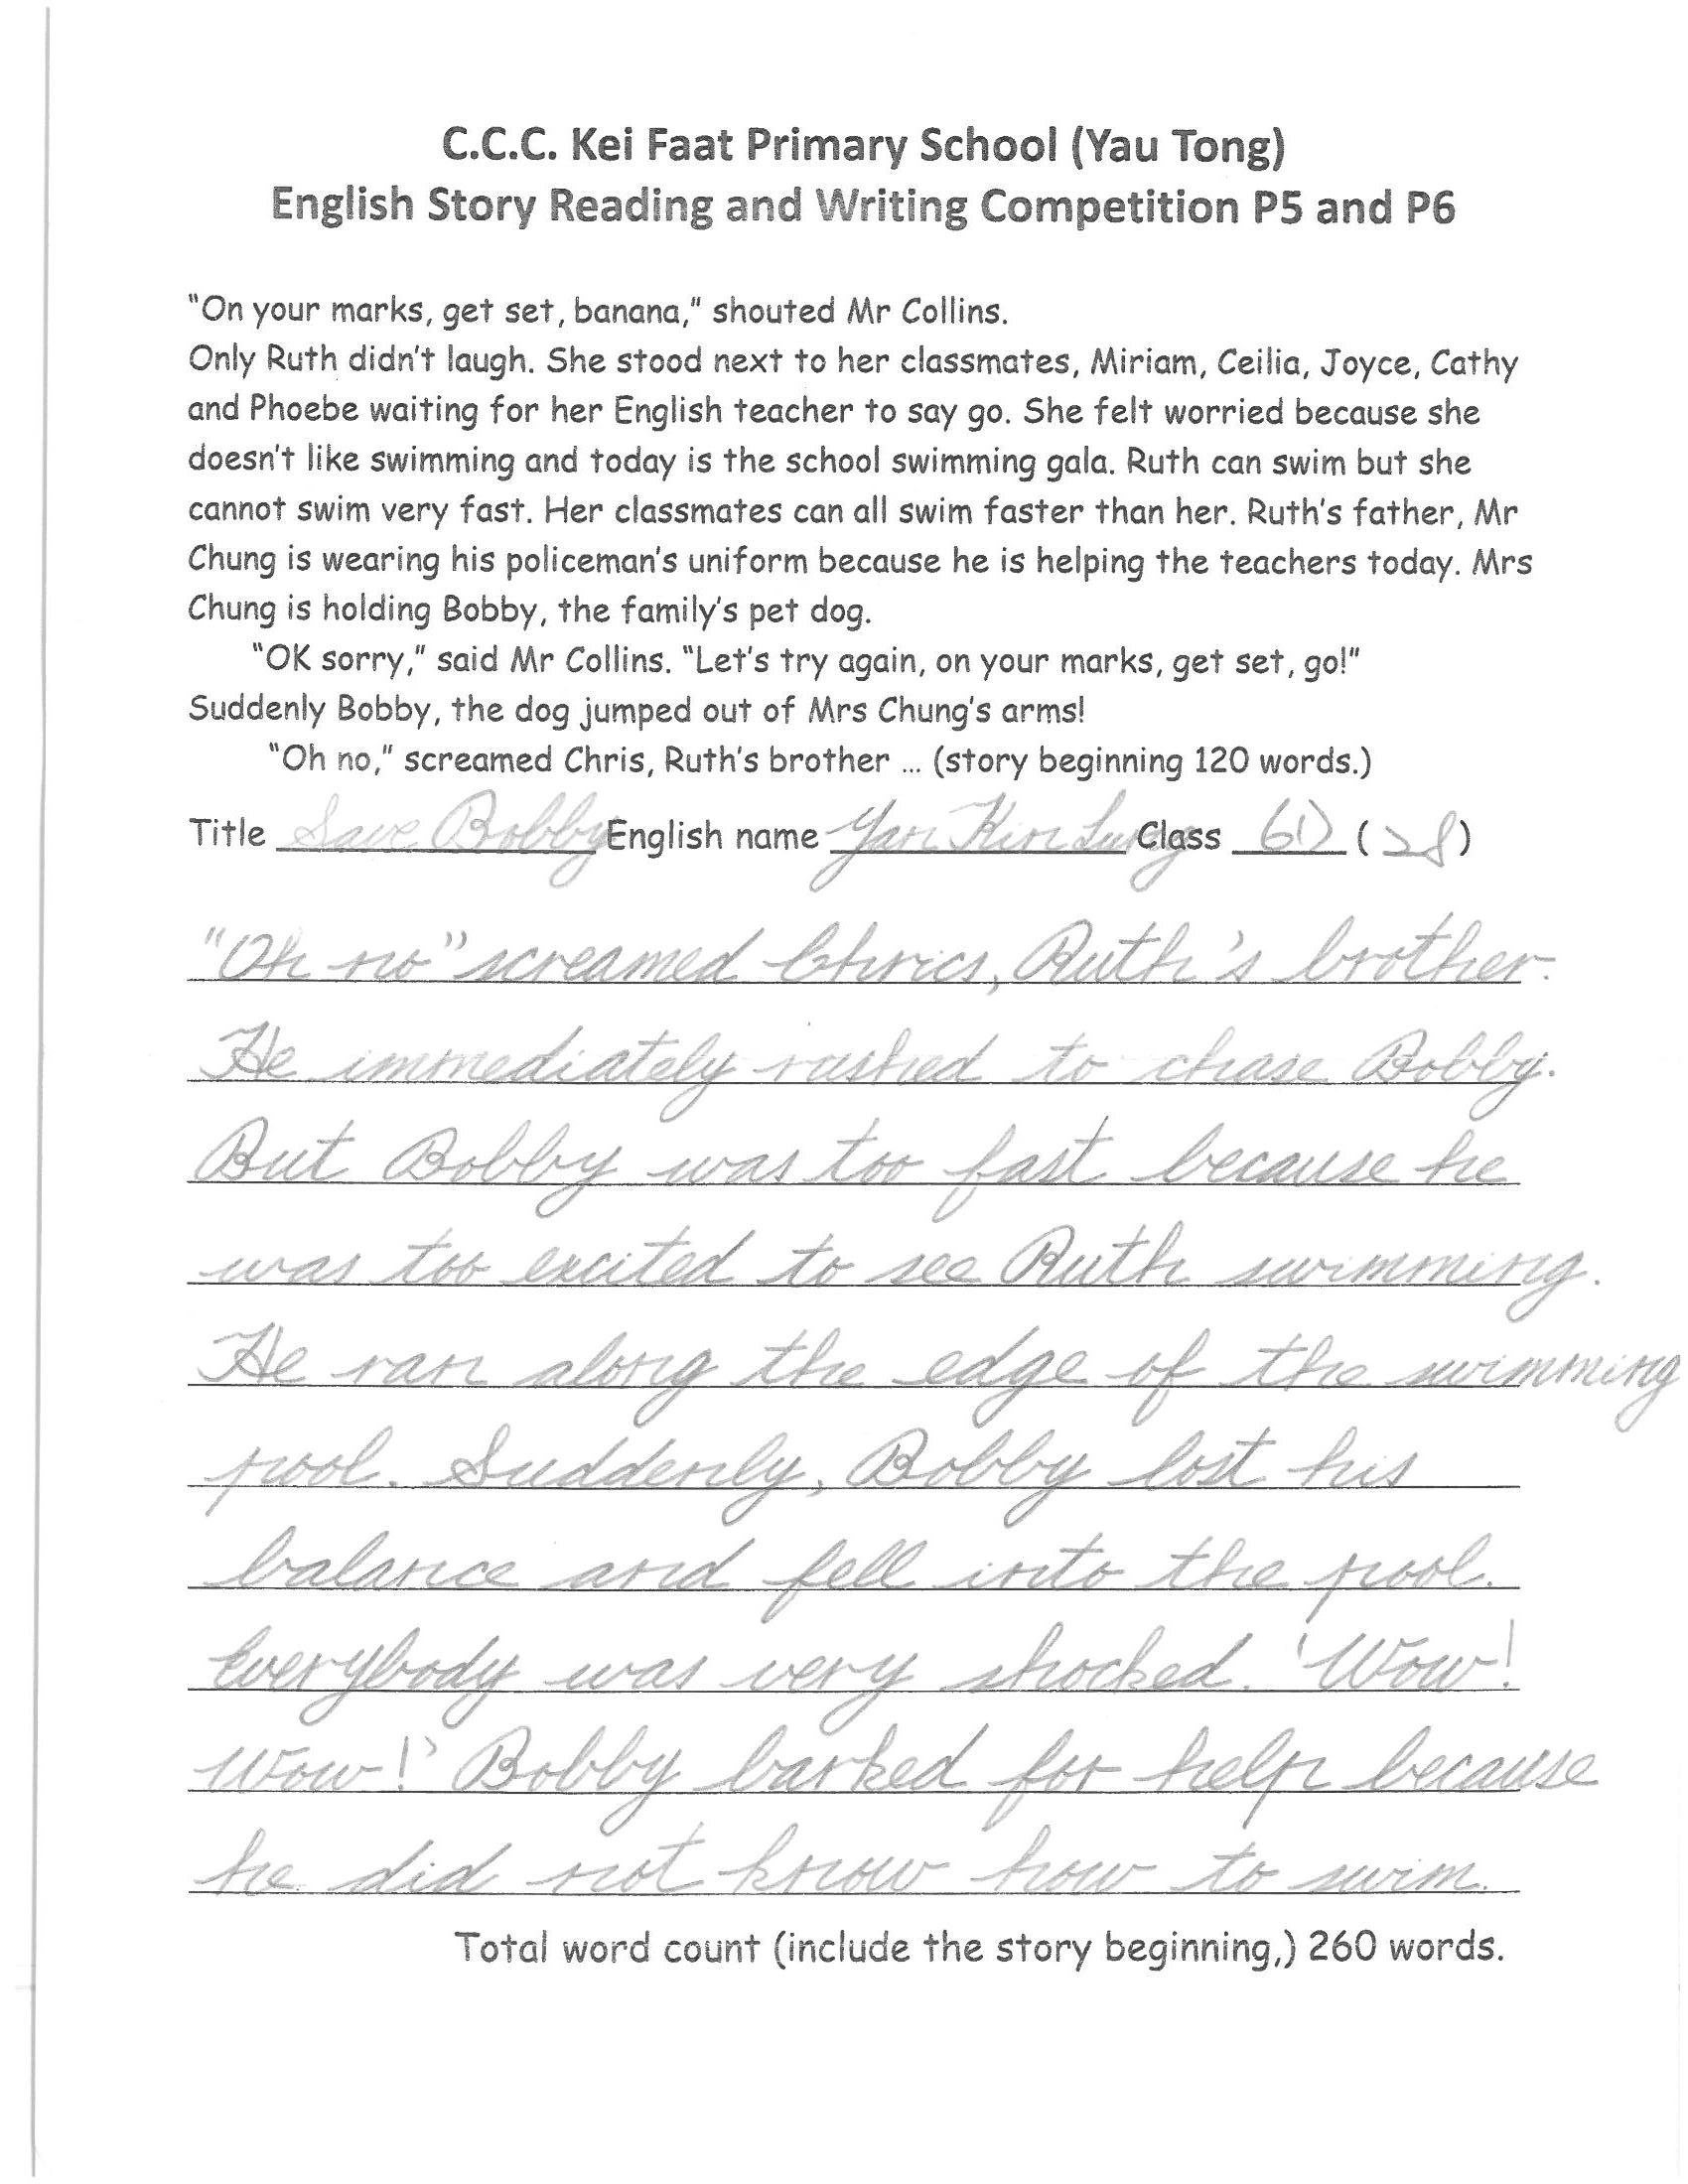 C.C.C. Kei Faat Primary School (Yau Tong)
English Story Reading and Writing Competition P5 and P6
"On your marks, get set, banana," shouted Mr Collins.
Only Ruth didn't laugh. She stood next to her classmates, Miriam, Ceilia, Joyce, Cathy
and Phoebe waiting for her English teacher to say go. She felt worried because she
doesn't like swimming and today is the school swimming gala. Ruth can swim but she
cannot swim very fast. Her classmates can all swim faster than her. Ruth's father, Mr
Chung is wearing his policeman's uniform because he is helping the teachers today. Mrs
Chung is holding Bobby, the family's pet dog.
"OK sorry," said Mr Collins. "Let's try again, on your marks, get set, go!"
Suddenly Bobby, the dog jumped out of Mrs Chung's arms!
"Oh no," screamed Chris, Ruth's brother ... (story beginning 120 words.)
Title Save Bobby English name Yan Kin Lung Class 6D (28)
"Oh no" screamed Chrics, Ruth's brother.
He immediately rushed to chase Bobby.
But Bobby was too fast because he
was too excited to see Ruth swimming.
He ran along the edge of the swimming
pool. Suddenly, Bobby lost his
balance and fell into the pool.
Everybody was very shocked. 'Wow!
Wow!' Bobby barked for help because
he did not know how to swim.
Total word count (include the story beginning,) 260 words.